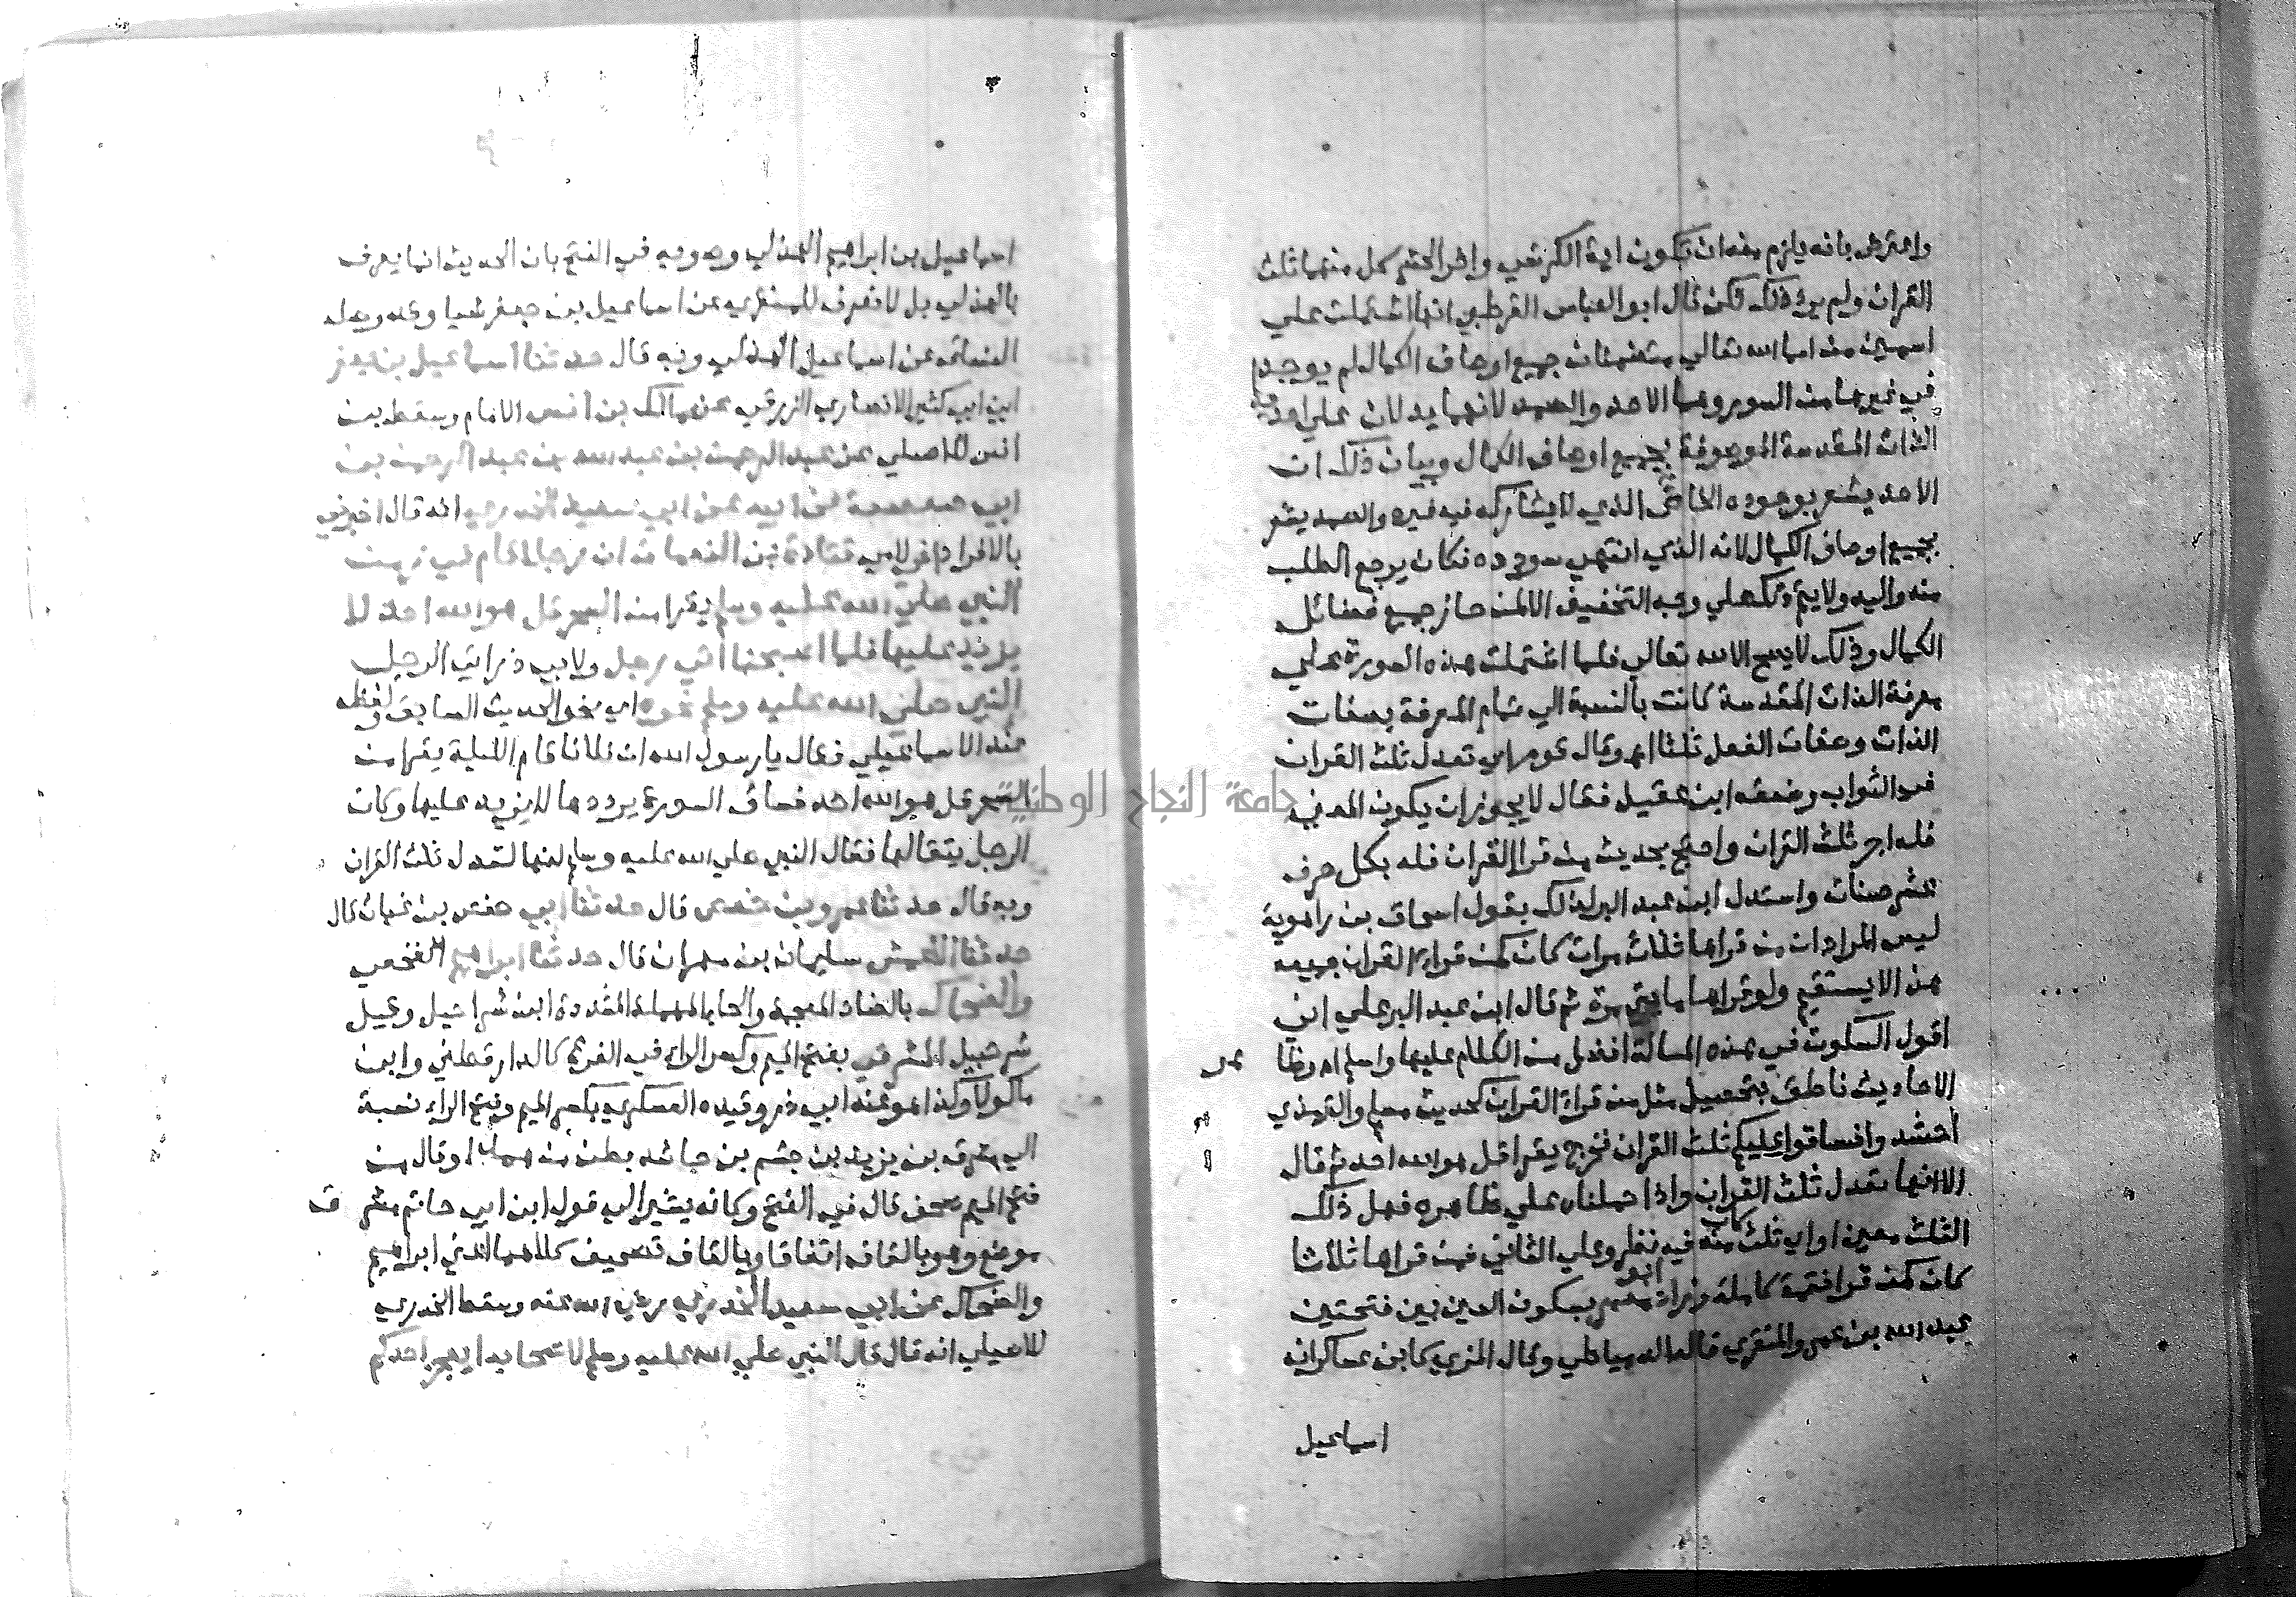 واعترض بانه يلزم منه ان تكون اية الكرسي واخر الحشر كل منهما ثلث
القران ولم يرد ذلك لكن قال ابو العباس القرطبي انها اشتملت على
اسمين من اسما الله تعالي متضمنان جميع اوصاف الكمال لم يوجدا
في غيرها من السور وهما الاحد والصمد لانهما يدلان علي احدية
الذات المقدسة الموصوفة بجميع اوصاف الكمال وبيان ذلك ان
الاحد يشعر بوجوده الخاص الذي لا يشاركه فيه غيره والصمد يشعر
بجميع اوصاف الكمال لانه الذي انتهي سودده فكان يرجع الطلب
منه واليه ولا يتم ذلك علي وجه التحقيق الا لمن حاز جميع فضائل
الكمال وذلك لا يصح الا لله تعالي فلما اشتملت هذه السورة علي
معرفة الذات المقدسة كانت بالنسبة الي تمام المعرفة بصفات
الذات وصفات الفعل ثلثا اهـ وقال قوم اي تعدل ثلث القران
في الثواب وضعفه ابن عقيل فقال لا يجوز ان يكون المعني
فله اجر ثلث القران واحتج بحديث من قرا القران فله بكل حرف
عشر حسنات واستدل ابن عبد البر لذلك بقول اسحاق بن راهوية
ليس المراد ان من قراها ثلاث مرات كان كمن قراءة القران جميعه
هذا لا يستقيم ولو قراها مايتي مرة ثم قال ابن عبد البر علي اني
اقول السكوت في هذه المسالة افضل من الكلام عليها واسلم اهـ وظا
الاحاديث ناطق بتحصيل مثل من قراة القران كحديث مسلم والترمذي
احشدوا فساقرا عليكم ثلث القران فخرج يقرا قل هو الله احد ثم قال
الا انها تعدل ثلث القران واذا حملناه علي ظاهره فهل ذلك
الثلث معين او اي ثلث كان منه فيه نظر وعلي الثاني فمن قراها ثلاثا
كان كمن قرا ختمة كاملة وزاد ابو معمر بسكون العين بين فتحتين
عبد الله بن عمرو المنقري قاله الدمياطي وقال المزي كابن عساكر انه
اسماعيل
اسماعيل بن ابراهيم الهذلي وصوبه في الفتح بان الحديث انما يعرف
بالهذلي بل لا نعرف للمنقري عن اسماعيل بن جعفر شيا وقد وصله
النسائي عن اسماعيل الهذلي وبه قال حدثنا اسماعيل بن جعفر
ابن ابي كثير الانصاري الزرقي عن مالك بن انس الامام وسقط بن
انس للاصيلي عن عبد الرحمن بن عبد الله بن عبد الرحمن بن
ابي صعصعة عن ابيه عن ابي سعيد الخدري انه قال اخبرني
بالافراد اخي لامي قتادة بن النعمان ان رجلا قام في زمن
النبي صلي الله عليه وسلم يقرا من السحر قل هو الله احد لا
يزيد عليها فلما اصبحنا اتي رجل ولابي ذر اتي الرجل
النبي صلي الله عليه وسلم نحوه اي نحو الحديث السابق ولفظه
عند الاسماعيلي فقال يا رسول الله ان فلانا قام الليلة يقرا من
السحر قل هو الله احد فساق السورة يرددها لا يزيد عليها وكان
الرجل يتقالها فقال النبي صلي الله عليه وسلم انها لتعدل ثلث القران
وبه قال حدثنا عمرو بن حفص قال حدثنا ابي حفص بن غياث قال
حدثنا الاعمش سليمان بن مهران قال حدثنا ابراهيم النخعي
والضحاك بالضاد المعجمة والحاء المهملة المشددة ابن شراحيل وقيل
شرحبيل المشرقي بفتح الميم وكسر الراء في الفرع كالدارقطني وابن
ماكولا وكذا هو عند ابي ذر وقيده العسكري بكسر الميم وفتح الراء نسبة
الي مشرق بن يزيد بن جشم بن حاشد بطن من همدان وقال من
فتح الميم صحف قال في الفتح وكانه يشير الي قول ابن ابي حاتم مشر ق
موضع وهو بالقاف اتفاقا وبالفاف تصحيف كلاهما اعني ابراهيم
والضحاك عن ابي سعيد الخدري رضي الله عنه وسقط الخدري
للاصيلي انه قال قال النبي صلي الله عليه وسلم لاصحابه ايعجز احدكم